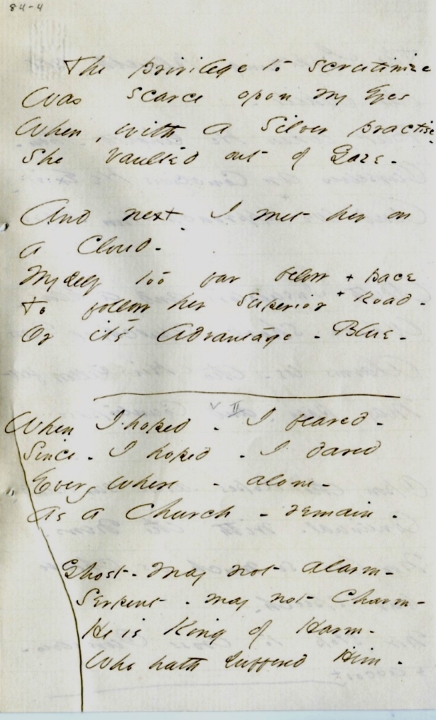 84-4
The privilege to scrutinize
Was scarce upon my Eyes
When, with a Silver practise -
She vaulted out of Gaze -
And next I met her on
a Cloud -
Myself too far below + pace
To follow her Superior + Road -
Or it's Advantage - Blue -
V II
When I hoped - I feared -
Since - I hoped - I dared
Everywhere - alone -
As a Church - remain -
Ghost - may not alarm -
Serpent - may not Charm -
He is King of Harm -
Who hath suffered Him -